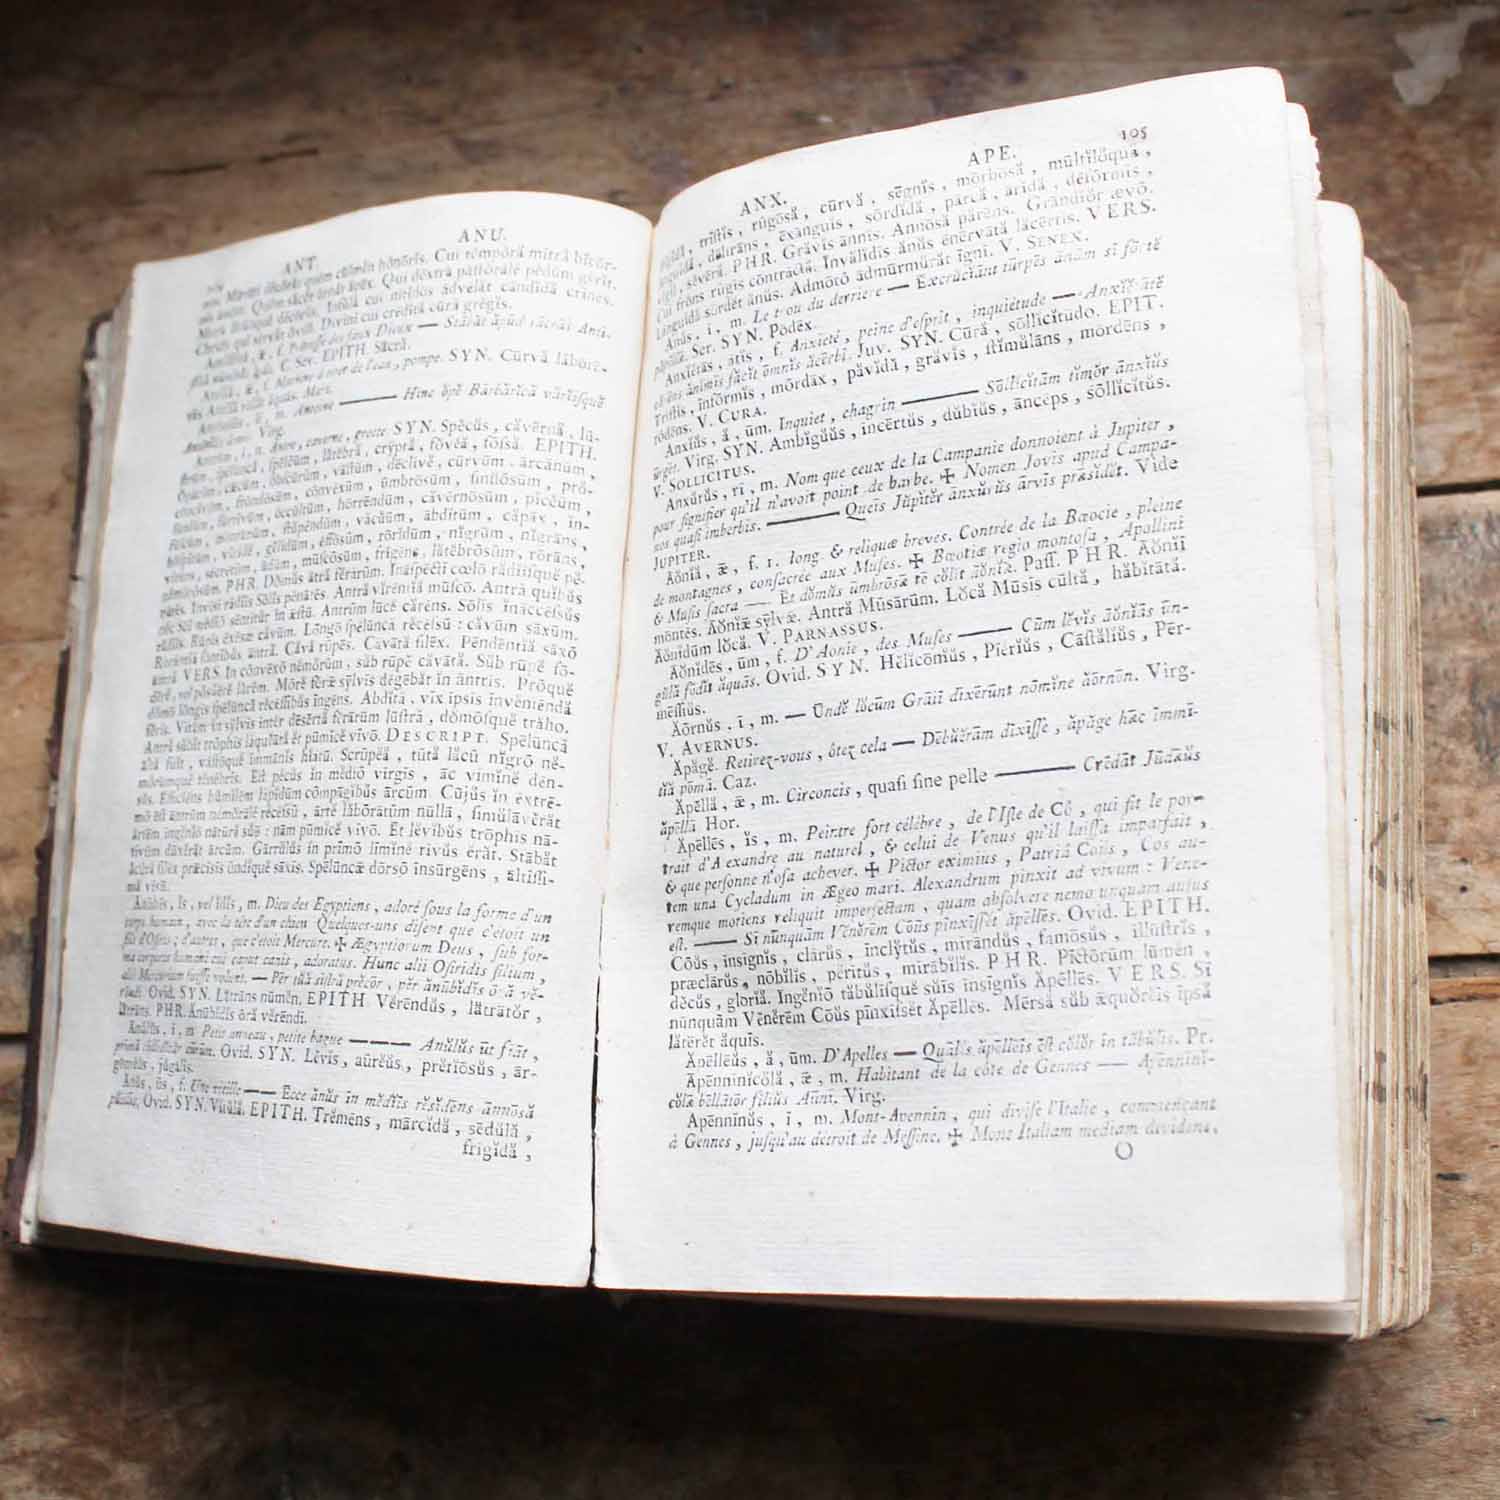 ANT. ANU.
Māgnī dĕdĕrīs quēm cūlmĕn hŏnōrīs. Cui tēmpŏrā mītrā bĭcōr-
nis ambit. Quēm săcĕr ōrnāt ăpēx. Qui dēxtrā pāstōrālĕ pĕdūm gĕrīt.
Christi qui sērvăt ŏvīlĕ. Dīvīni cui crēdĭtă cūră grĕgīs.
f. Prêtresse des faux Dieux — Stābăt ăpŭd săcrās Anti-
C. Ser. EPITH. Săcră.
Antlĭă, æ, f. Machine à tirer de l'eau, pompe. SYN. Cūrvă lăbōrē-
vās Antlĭă aquas. Mart.
m. Antoine —— Hinc ŏpĕ Bārbărĭcā vărĭīsquĕ
Virg.
Antrūm, i, n. Antre, caverne, grotte SYN. Spĕcŭs, căvērnă, lū-
spēlūncă, spēlǣūm, lătĕbră, crȳptă, fŏvĕă, fōssă. EPITH.
Opācūm, cǣcūm, ōbscūrūm, vāstūm, dēclīvĕ, cūrvūm, ārcānūm,
frōndōsūm, cōnvēxūm, ūmbrōsūm, sĭnŭōsūm, prō-
fūndūm, fūrtīvūm, ōccūltūm, hōrrēndūm, căvērnōsūm, pĭcĕūm,
stŭpēndūm, văcŭūm, ābdĭtūm, căpāx, īn-
gĕlĭdūm, ēffōssūm, rōrĭdūm, nīgrūm, nīgrāns,
sēcrētūm, ūdūm, mūscōsūm, frīgēns, lătĕbrōsūm, rōrāns,
nĕmŏrōsūm. PHR. Dŏmŭs ātră fĕrārūm. Ināspēctī cœlō rădĭīsquĕ pĕ-
nātēs. Invĭsī rădĭīs Sōlis pĕnātēs. Antră vĭrēntĭă mūscō. Antră quĭbūs
nēc Sōl mĕdĭō sēntītŭr ĭn ǣstū. Antrūm lūcĕ cărēns. Sōlis ĭnāccēssūs
rădĭīs. Rūpĭs ēxēsæ căvūm. Lōngō spēlūncă rĕcēssū: căvūm sāxūm.
Rōrāntĭă fōntĭbŭs āntră. Căvă rūpēs. Căvātă sĭlēx. Pēndēntĭă sāxō
āntră VERS. In cōnvēxō nĕmŏrūm, sŭb rūpĕ căvātā. Sŭb rūpĕ fō-
dĕrĕ, vēl pŏsŭērĕ lărēm. Mōrĕ fĕræ sȳlvis dēgēbāt ĭn āntris. Prōquĕ
dŏmō lōngis spēlūncă rĕcēssĭbŭs ĭngēns. Abdĭtă, vīx īpsis ĭnvĕnĭēndă
fĕrīs. Vītām ĭn sȳlvis intēr dēsērtă fĕrārūm lūstră, dŏmōsquĕ trăhō.
Antră sŭbīt trōphis lăquĕātă ēt pūmĭcĕ vīvō. DESCRIPT. Spēlūncă
āltă fŭit, vāstōquĕ immānis hĭātū. Scrūpĕă, tūtă lăcū nīgrō nĕ-
mŏrūmquĕ tĕnĕbrīs. Est pĕcŭs ĭn mĕdĭō virgis, āc vīmĭnĕ dēn-
sŭs. Effĭcĭēns hŭmĭlēm lăpĭdūm cōmpāgĭbŭs ārcūm. Cūjŭs ĭn ēxtrē-
mō ēst āntrūm nĕmŏrālĕ rĕcēssū, ārtĕ lăbōrātūm nūllā, sĭmŭlāvĕrăt
ārtēm ingĕnĭō nātūră sŭō: nām pūmĭcĕ vīvō. Et lĕvĭbūs trōphis nā-
tīvūm dūxĕrăt ārcūm. Gārrŭlŭs ĭn prīmō līmĭnĕ rīvŭs ĕrăt. Stābăt
ăcūtă sĭlēx præcīsis ūndĭquĕ sāxis. Spēlūncæ dōrsō insūrgēns, āltīssĭ-
mă vīsū.
Anūbĭs, ĭs, vel ĭdis, m. Dieu des Egyptiens, adoré sous la forme d'un
corps humain, avec la tête d'un chien Quelques-uns disent que c'étoit un
fils d'Osiris; d'autres, que c'étoit Mercure. ✠ Ægyptiorum Deus, sub for-
ma corporis humani cui caput canis, adoratus. Hunc alii Osiridis filium,
alii Mercurium fuisse volunt. — Pēr tŭă sīstră prĕcōr, pēr ănūbĭdĭs ōră vĕ-
rēndi. Ovid. SYN. Lātrāns nūmēn. EPITH. Vĕrēndŭs, lātrātŏr,
lātrāns. PHR. Anūbĭdis ōră vĕrēndi.
Anŭlŭs, i, m Petit anneau, petite bague — — — Anŭlŭs ūt fīăt,
Ovid. SYN. Lĕvis, aŭrĕŭs, prĕtĭōsŭs, ār-
gēntĕŭs, jŭgālis.
Anŭs, ūs, f. Une vieille —— Ecce ănŭs in mĕdĭis rĕsĭdēns ānnōsă
pŭēllis. Ovid. SYN. Vĕtŭlă. EPITH. Trĕmēns, mārcĭdă, sēdŭlă,
frīgĭdă,
ANX. APE. 105
trīstĭs, rūgōsă, cūrvă, sēgnĭs, mōrbōsă, mūltĭlŏquă,
dēlīrāns, ēxānguĭs, sōrdĭdă, pārcă, ārĭdă, dēfōrmĭs,
sĕvēră. PHR. Grăvĭs ānnīs. Annōsă părēns. Grāndĭŏr ævō.
Cui frōns rūgīs cōntrāctă. Invălĭdīs ănŭs ēnērvātă lăcērtīs. VERS.
Lānguĭdă sūrdĕt ănŭs. Admōtō ādmūrmŭrăt īgni. V. SENEX.
Anŭs, i, m. Le trou du derriere — Excrūcĭānt tūrpēs ānūm si fōrtĕ
păpŭlæ. Ser. SYN. Pōdēx.
Anxĭĕtās, ātis, f. Anxiété, peine d'esprit, inquiétude —— Anxĭĕtātĕ
cărēns ănĭmūs făcit ōmnĭs ăcērbi. Juv. SYN. Cūră, sōllĭcĭtūdo. EPIT.
Trīstĭs, infōrmĭs, mōrdāx, păvĭdă, grăvĭs, stĭmŭlāns, mōrdēns,
rōdēns. V. CURA.
Anxĭŭs, ă, ūm. Inquiet, chagrin —— Sōllĭcĭtām tĭmŏr ānxĭŭs
ūrgĕt. Virg. SYN. Ambĭgŭŭs, incērtŭs, dŭbĭŭs, āncēps, sōllĭcĭtŭs.
V. SOLLICITUS.
Anxŭrŭs, ri, m. Nom que ceux de la Campanie donnoient à Jupiter,
pour signifier qu'il n'avoit point de barbe. ✠ Nomen Jovis apud Campa-
nos quasi imberbis. —— Queis Jūpĭtĕr ānxŭrŭs ārvis præsĭdĕt. Vide
JUPITER.
Āŏnĭă, æ, f. 1. long. & reliquæ breves. Contrée de la Bœocie, pleine
de montagnes, consacrée aux Muses. ✠ Bœotiæ regio montosa, Apollini
& Musis sacra — Et dŏmŭs ūmbrōsæ tē cŏlit āŏnĭæ. Pass. PHR. Āŏnĭi
mōntēs. Āŏnĭæ sȳlvæ. Antră Mūsārūm. Lŏcă Mūsis cūltă, hăbĭtātă.
Āŏnĭdūm lŏcă. V. PARNASSUS.
Āŏnĭdēs, ūm, f. D'Aonie, des Muses —— Cūm lĕvis āŏnĭās ūn-
gŭlă fōdit ăquās. Ovid. SYN. Hĕlĭcōnĭŭs, Pīĕrĭŭs, Cāstălĭŭs, Pēr-
mēssĭŭs.
Āōrnŭs, i, m. — Ūndĕ lŏcūm Grāiī dīxērūnt nōmĭnĕ ăōrnōn. Virg.
V. AVERNUS.
Ăpăgĕ. Retirez-vous, ôtez cela — Dēbŭĕrām dīxīsse, ăpăge hæc immī-
tĭă pōmă. Caz.
Ăpēllă, æ, m. Circoncis, quasi sine pelle —— Crēdăt Jūdæŭs
ăpēllă Hor.
Ăpēllēs, ĭs, m. Peintre fort célébre, de l'Isle de Cô, qui fit le por-
trait d'Alexandre au naturel, & celui de Venus qu'il laissa imparfait,
& que personne n'osa achever. ✠ Pictor eximius, Patriâ Coüs, Cos au-
tem una Cycladum in Ægeo mari. Alexandrum pinxit ad vivum: Vene-
remque moriens reliquit imperfectam, quam absolvere nemo unquam ausus
est. —— Si nūnquām Vĕnĕrēm Cōŭs pinxīssĕt ăpēllēs. Ovid. EPITH.
Cōŭs, insignis, clārŭs, inclȳtŭs, mīrāndŭs, fāmōsŭs, illūstris,
præclārŭs, nōbĭlis, pĕrītŭs, mīrābĭlis. PHR. Pīctōrūm lūmĕn,
dĕcŭs, glōrĭă. Ingĕnĭō tăbŭlīsquĕ sŭis insignis Ăpēllēs. VERS. Si
nūnquām Vĕnĕrēm Cōŭs pinxīssĕt Ăpēllēs. Mērsă sŭb æquŏrĕis īpsă
lătērĕt ăquis.
Ăpēllēŭs, ă, ūm. D'Apelles — Quālis ăpēllēis ēst cŏlŏr in tăbŭlis. Pr.
Ăpēnnĭnĭcŏlă, æ, m. Habitant de la côte de Gennes —— Apēnnĭnĭ-
cŏlæ bēllātŏr fīlĭŭs Aūni. Virg.
Ăpēnnīnŭs, i, m. Mont-Avennin, qui divise l'Italie, commençant
à Gennes, jusqu'au détroit de Messine. ✠ Mons Italiam mediam dividens,
O